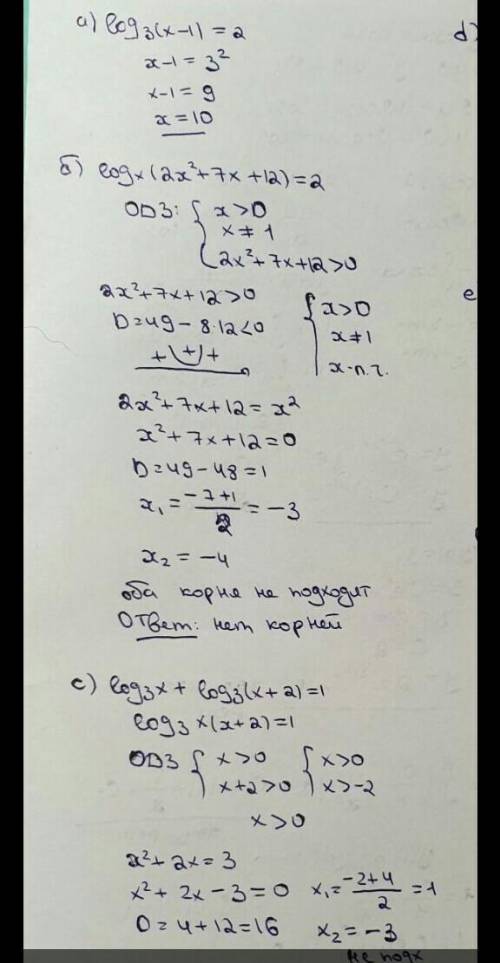 а) log₃(x-1) = 2
d)
x-1 = 3²
x-1 = 9
x = 10
б) logₓ(2x²+7x+12)=2
ОДЗ: { x>0
x≠1
2x²+7x+12>0
2x²+7x+12>0 { x>0
e
D=49-8·12<0 x≠1
+ + + x-п.ч.
2x²+7x+12=x²
x²+7x+12=0
D=49-48=1
x₁ = (-7+1)/2 = -3
x₂ = -4
оба корня не подходят
Ответ: нет корней
c) log₃x + log₃(x+2)=1
log₃ x(x+2)=1
ОДЗ { x>0 { x>0
x+2>0 x>-2
x>0
x²+2x=3
x²+2x-3=0 x₁=(-2+4)/2=1
D=4+12=16 x₂=-3
не подх